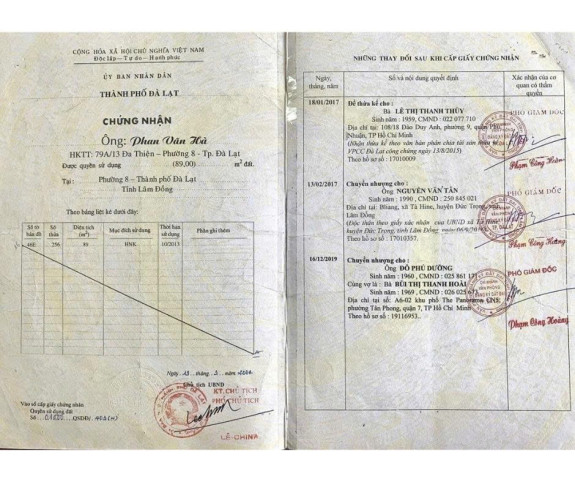 CỘNG HÒA XÃ HỘI CHỦ NGHĨA VIỆT NAM
Độc lập – Tự do – Hạnh phúc
ỦY BAN NHÂN DÂN
THÀNH PHỐ ĐÀ LẠT
CHỨNG NHẬN
Ông: Phan Văn Hà
HKTT: 79A/13 Đa Thiện – Phường 8 - Tp. Đà Lạt
Được quyền sử dụng (89,00) m² đất.
Tại: Phường 8 – Thành phố Đà Lạt
Tỉnh Lâm Đồng
Theo bảng liệt kê dưới đây:
Số tờ bản đồ Số thửa Diện tích (m²) Mục đích sử dụng Thời hạn sử dụng Phần ghi thêm
256 HNK 10/2013
TM. UBND
KT. CHỦ TỊCH
PHÓ CHỦ TỊCH
LÊ-CHINA
Vào sổ cấp giấy chứng nhận
Quyền sử dụng đất
Số QSDĐ/
NHỮNG THAY ĐỔI SAU KHI CẤP GIẤY CHỨNG NHẬN
Ngày, tháng, năm Số và nội dung quyết định Xác nhận của cơ quan có thẩm quyền
18/01/2017 Để thừa kế cho: PHÓ GIÁM ĐỐC
Bà LÊ THỊ THANH THỦY
Sinh năm: 1959, CMND : 022 077 710
Địa chỉ tại: 108/18 Đào Duy Anh, phường 9, quận
Nhuận, TP Hồ Chí Minh
(Nhận thừa kế theo văn bản phân chia tài sản thừa kế
VPCC Đà Lạt công chứng ngày 13/8/2015)
Theo hồ sơ số : 17010009
Phạm Công Hoàng
13/02/2017 Chuyển nhượng cho: PHÓ GIÁM ĐỐC
Ông NGUYỄN VĂN TÂN
Sinh năm : 1990 , CMND : 250 845 021
Địa chỉ tại: xã Tà Hine, huyện Đức Trọng, tỉnh
Lâm Đồng
(Độc thân theo giấy xác nhận của UBND xã Tà Hine
huyện Đức Trọng, tỉnh Lâm Đồng
Theo hồ sơ số : 17010357.
Phạm Công Hoàng
16/12/2019 Chuyển nhượng cho : PHÓ GIÁM ĐỐC
Ông ĐỖ PHÚ DƯỜNG
Sinh năm : 1960 , CMND : 025 861
Cùng vợ là : Bà BÙI THỊ THANH HOÀI
Sinh năm : 1969 , CMND : 026 025
Địa chỉ tại số: A6-02 khu phố The
phường Tân Phong, quận 7, TP Hồ Chí Minh
Theo hồ sơ số : 19116953..
Phạm Công Hoàng